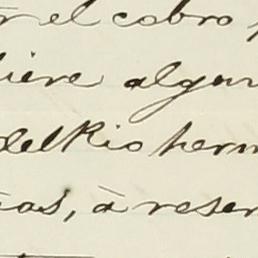 r el cobro
iere algun
del Rio herm
as, à reser